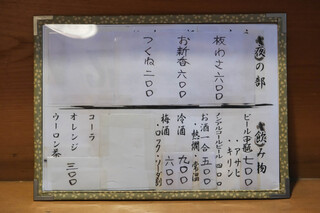 夜の部
板わさ 六〇〇
お新香 六〇〇
つくね 二〇〇
飲み物
ビール中瓶 七〇〇
・アサヒ
・キリン
ノンアルコールビール 四〇〇
お酒一合 五〇〇
・熱燗・常温
冷酒 九〇〇
梅酒 六〇〇
・ロック・ソーダ割
コーラ
オレンジ 三〇〇
ウーロン茶